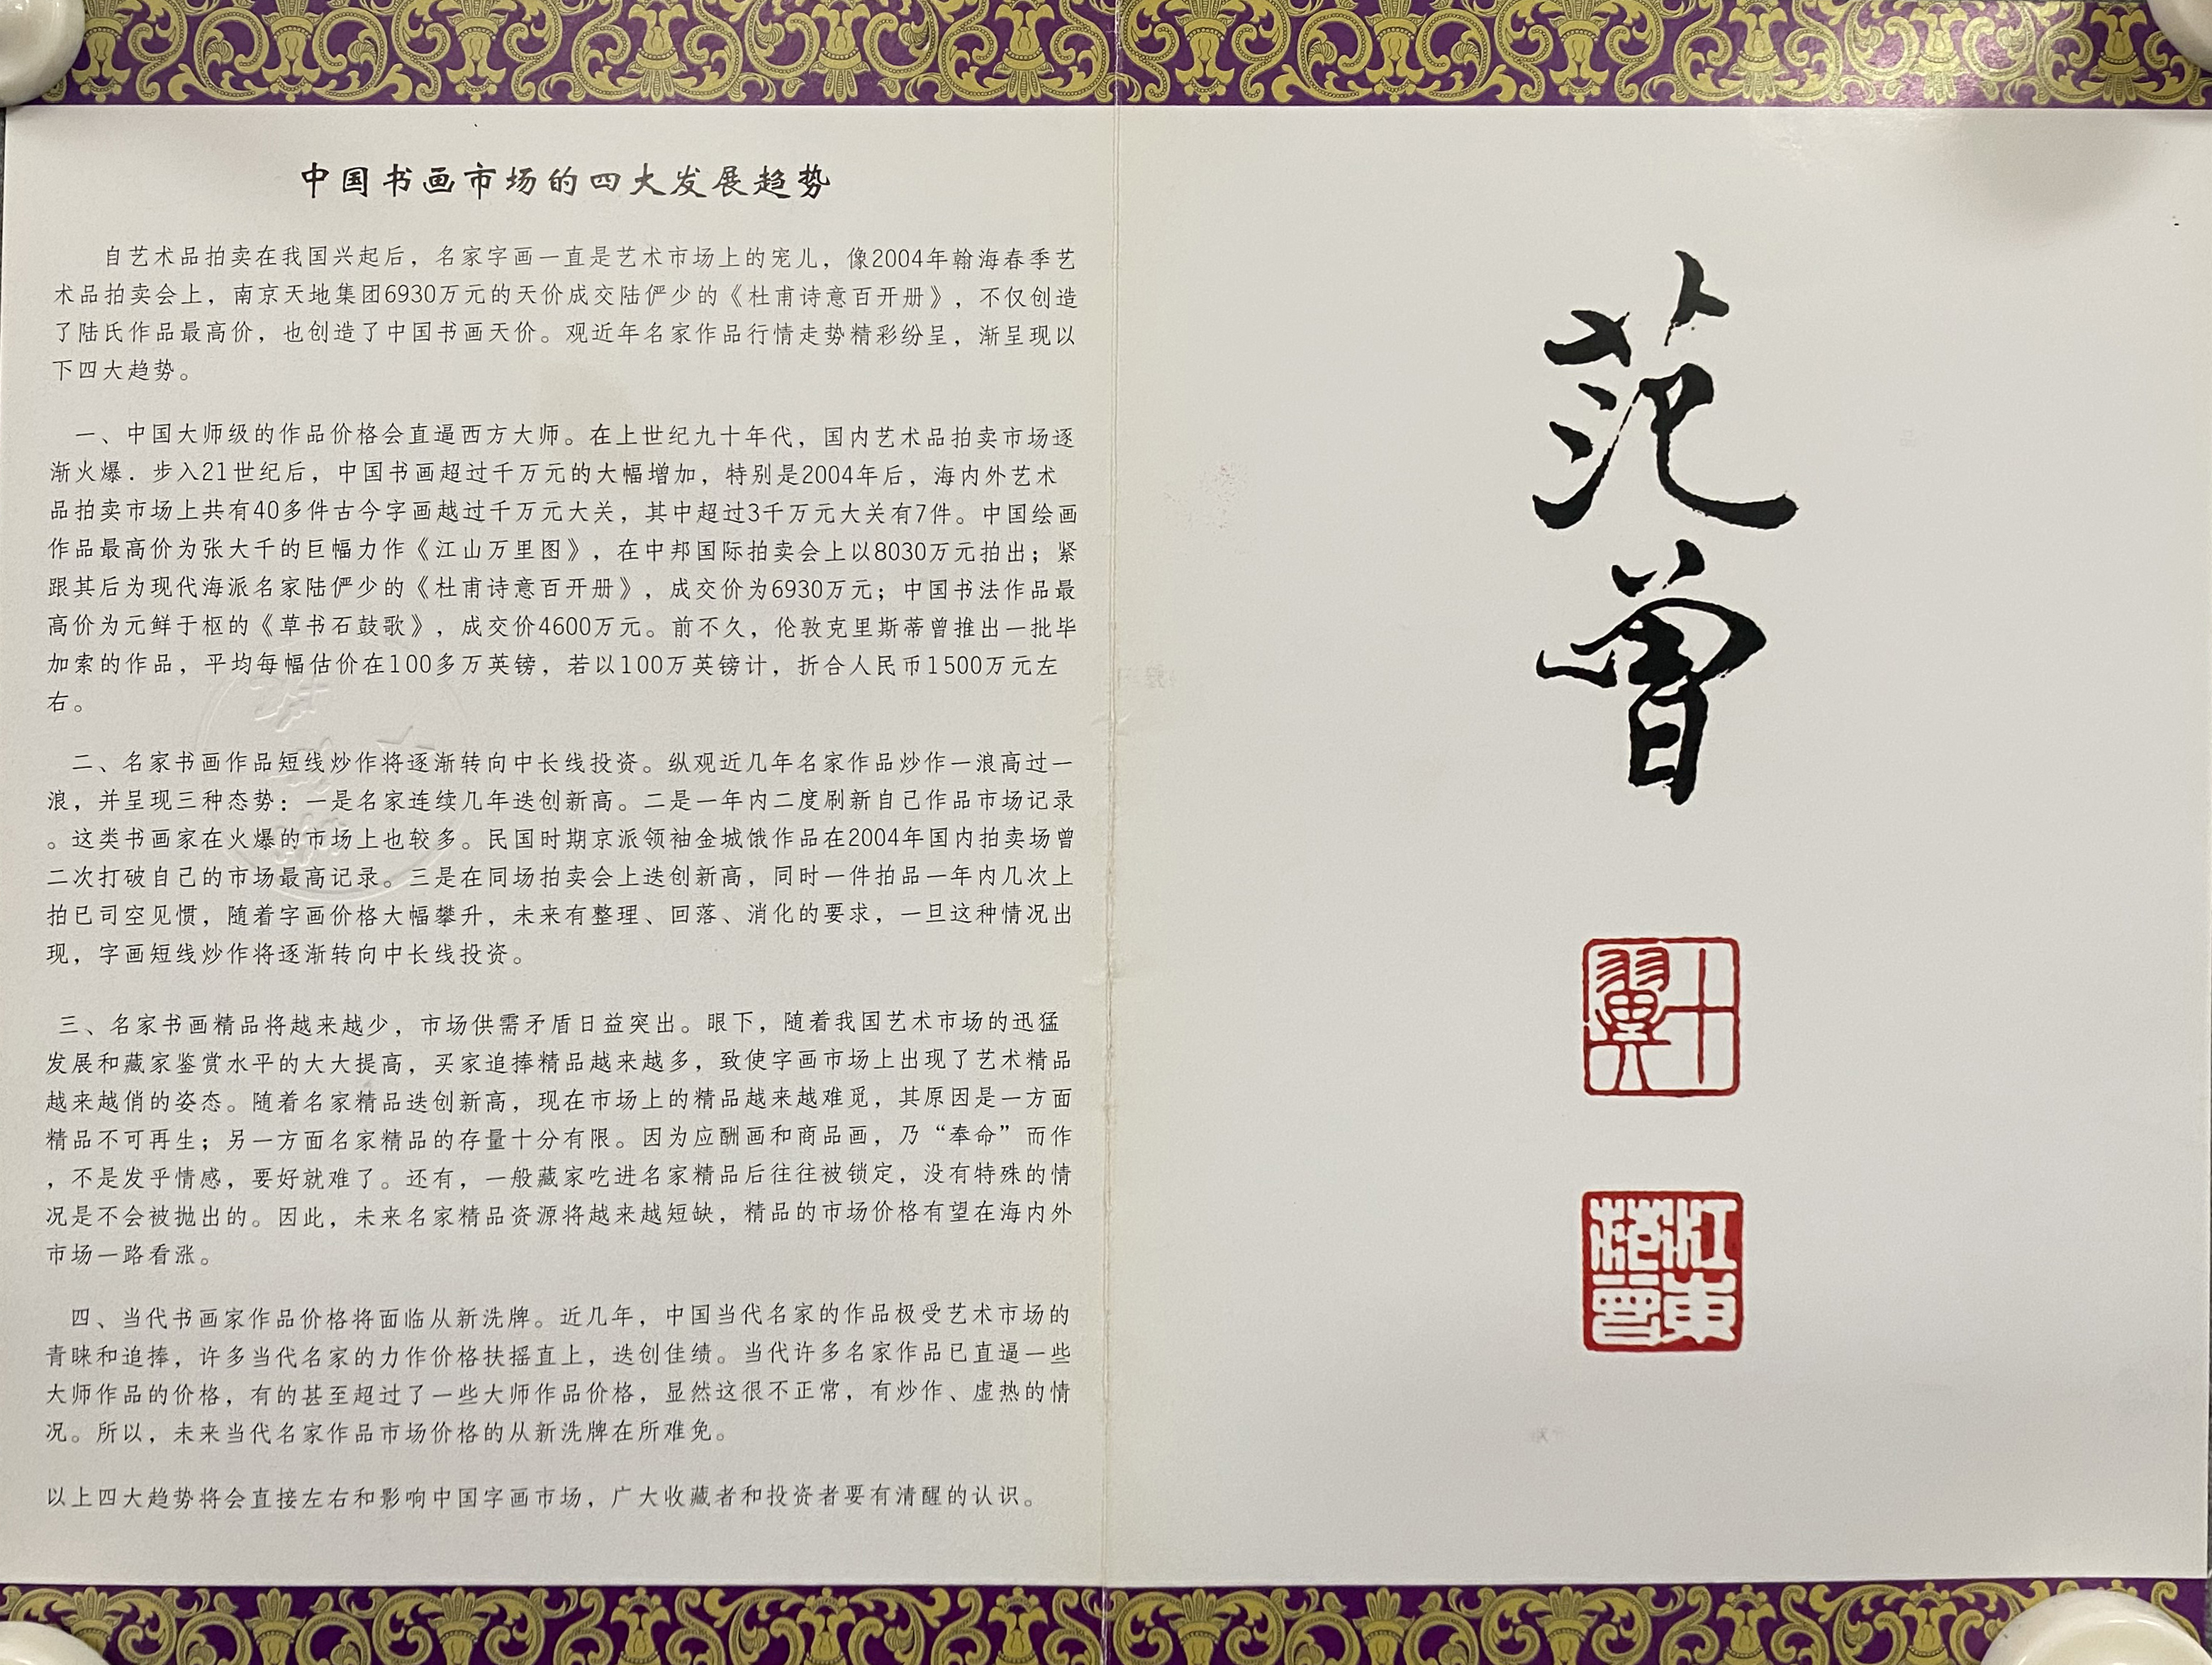 中国书画市场的四大发展趋势
自艺术品拍卖在我国兴起后，名家字画一直是艺术市场上的宠儿，像2004年翰海春季艺
术品拍卖会上，南京天地集团6930万元的天价成交陆俨少的《杜甫诗意百开册》，不仅创造
了陆氏作品最高价，也创造了中国书画天价。观近年名家作品行情走势精彩纷呈，渐呈现以
下四大趋势。
一、中国大师级的作品价格会直逼西方大师。在上世纪九十年代，国内艺术品拍卖市场逐
渐火爆．步入21世纪后，中国书画超过千万元的大幅增加，特别是2004年后，海内外艺术
品拍卖市场上共有40多件古今字画越过千万元大关，其中超过3千万元大关有7件。中国绘画
作品最高价为张大千的巨幅力作《江山万里图》，在中邦国际拍卖会上以8030万元拍出；紧
跟其后为现代海派名家陆俨少的《杜甫诗意百开册》，成交价为6930万元；中国书法作品最
高价为元鲜于枢的《草书石鼓歌》，成交价4600万元。前不久，伦敦克里斯蒂曾推出一批毕
加索的作品，平均每幅估价在100多万英镑，若以100万英镑计，折合人民币1500万元左
右。
二、名家书画作品短线炒作将逐渐转向中长线投资。纵观近几年名家作品炒作一浪高过一
浪，并呈现三种态势：一是名家连续几年迭创新高。二是一年内二度刷新自己作品市场记录
。这类书画家在火爆的市场上也较多。民国时期京派领袖金城饿作品在2004年国内拍卖场曾
二次打破自己的市场最高记录。三是在同场拍卖会上迭创新高，同时一件拍品一年内几次上
拍已司空见惯，随着字画价格大幅攀升，未来有整理、回落、消化的要求，一旦这种情况出
现，字画短线炒作将逐渐转向中长线投资。
三、名家书画精品将越来越少，市场供需矛盾日益突出。眼下，随着我国艺术市场的迅猛
发展和藏家鉴赏水平的大大提高，买家追捧精品越来越多，致使字画市场上出现了艺术精品
越来越俏的姿态。随着名家精品迭创新高，现在市场上的精品越来越难觅，其原因是一方面
精品不可再生；另一方面名家精品的存量十分有限。因为应酬画和商品画，乃“奉命”而作
，不是发乎情感，要好就难了。还有，一般藏家吃进名家精品后往往被锁定，没有特殊的情
况是不会被抛出的。因此，未来名家精品资源将越来越短缺，精品的市场价格有望在海内外
市场一路看涨。
四、当代书画家作品价格将面临从新洗牌。近几年，中国当代名家的作品极受艺术市场的
青睐和追捧，许多当代名家的力作价格扶摇直上，迭创佳绩。当代许多名家作品已直逼一些
大师作品的价格，有的甚至超过了一些大师作品价格，显然这很不正常，有炒作、虚热的情
况。所以，未来当代名家作品市场价格的从新洗牌在所难免。
以上四大趋势将会直接左右和影响中国字画市场，广大收藏者和投资者要有清醒的认识。
范曾
十翼
江東范曾